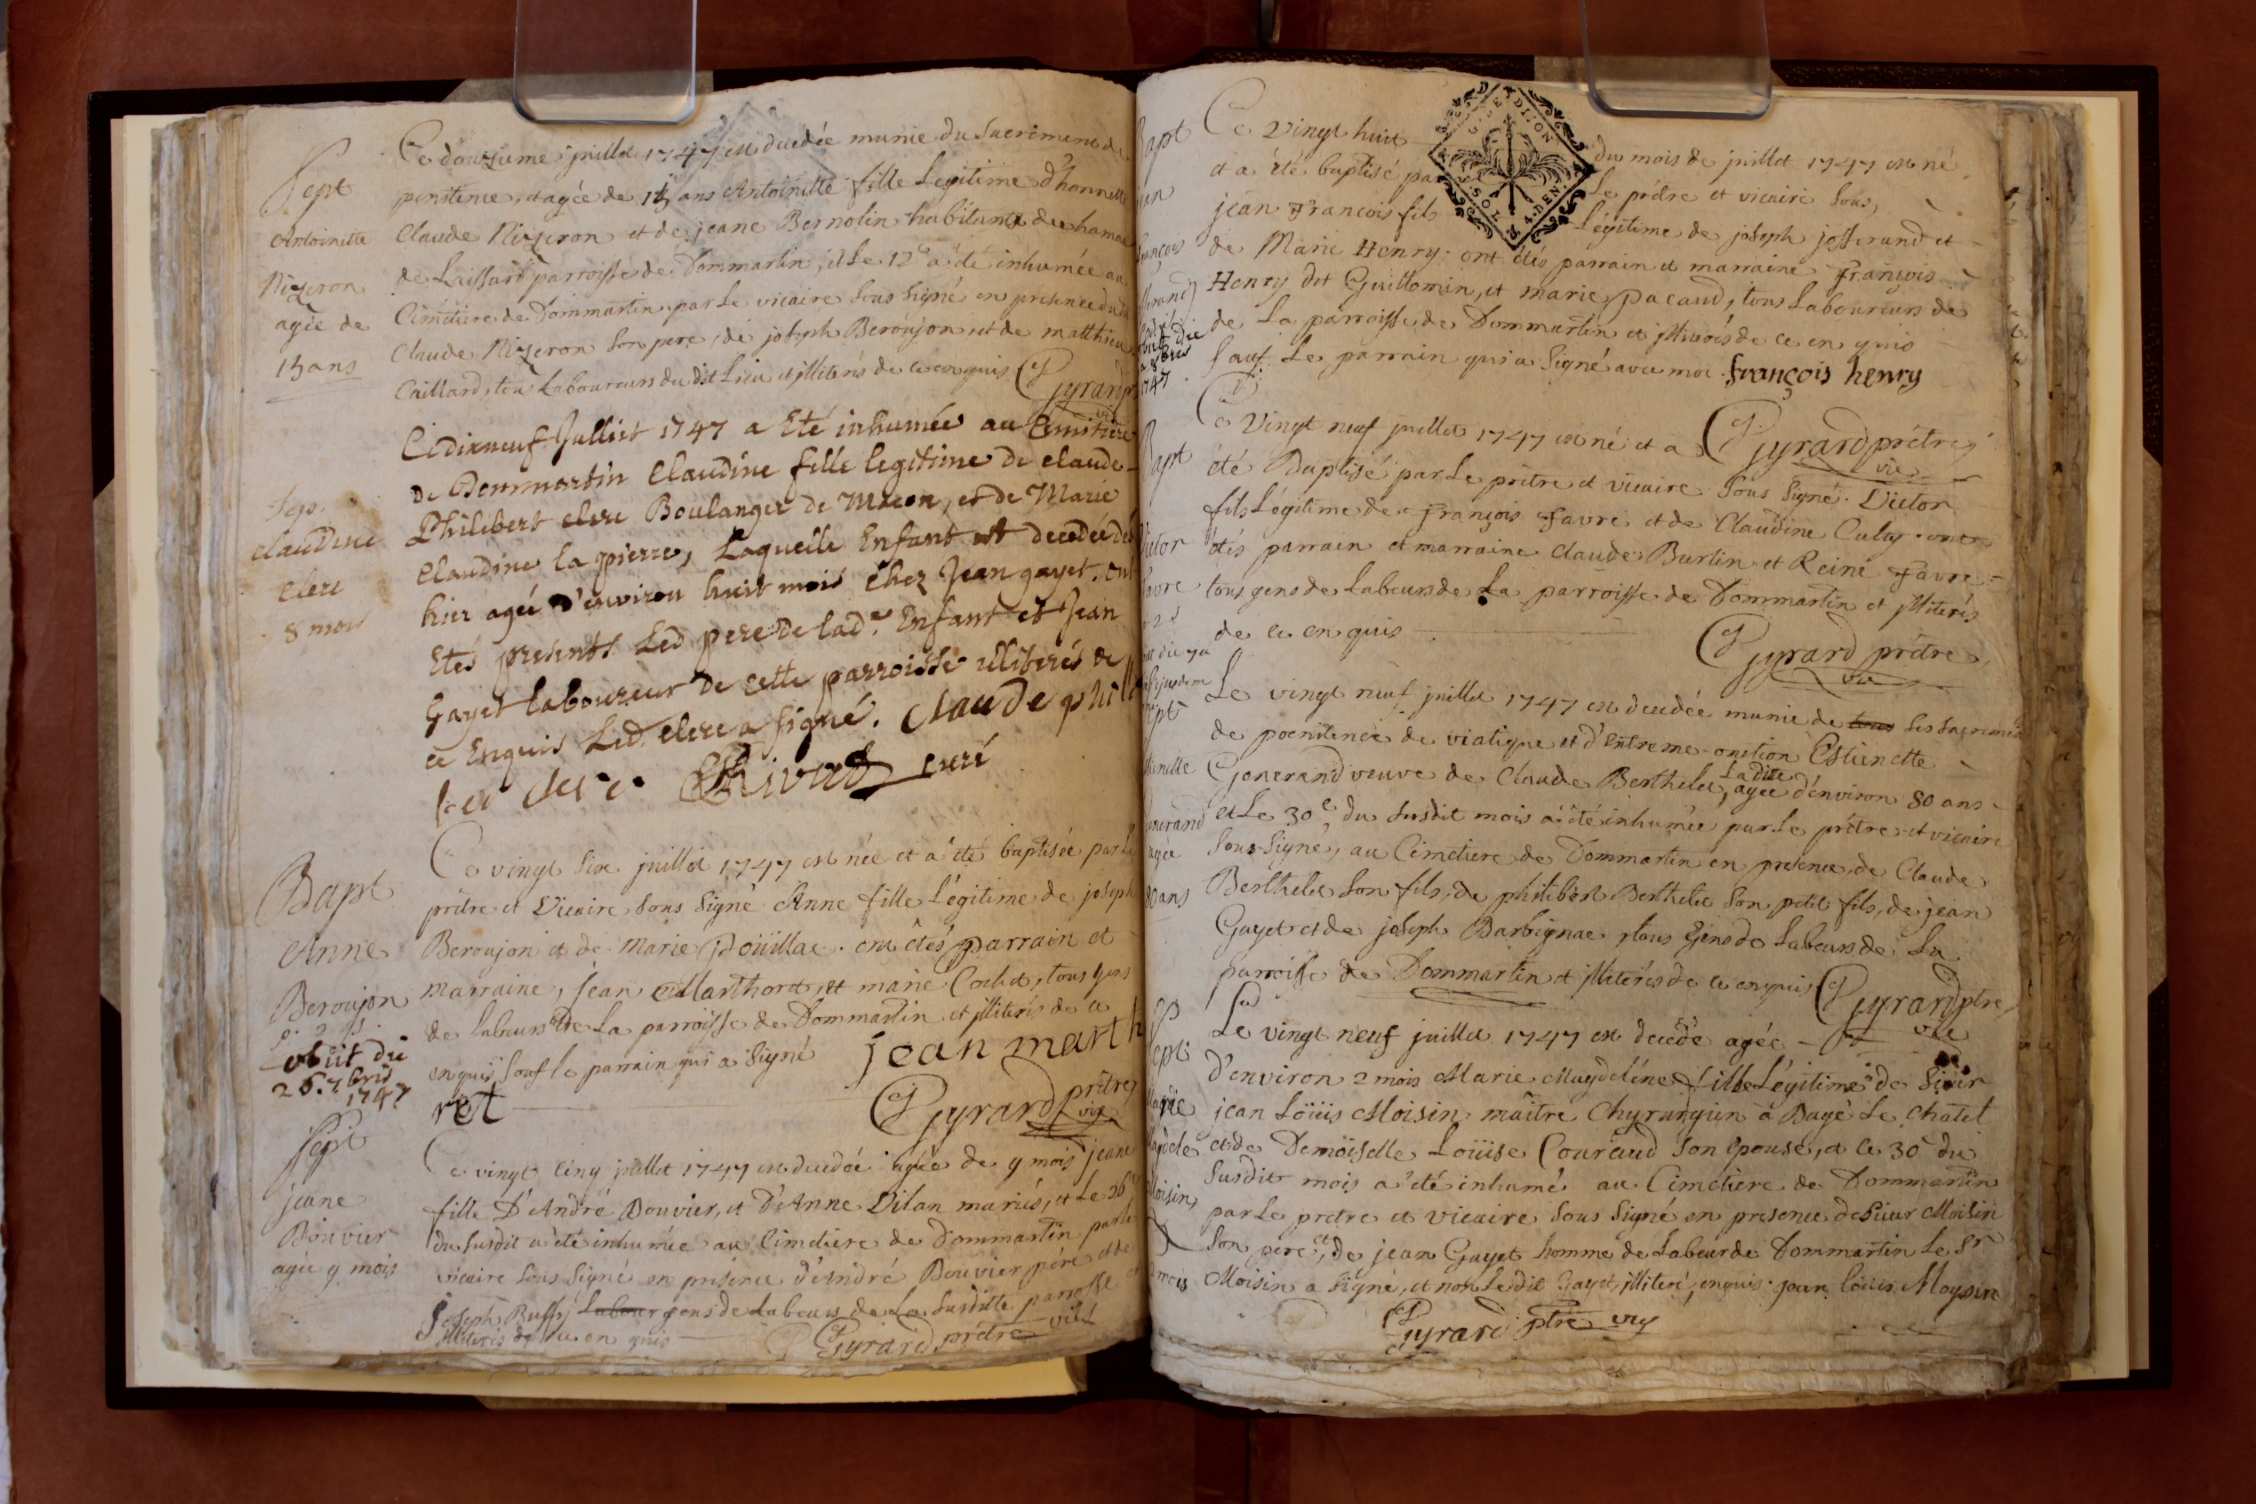 Sept
Antoinette
Nizeron
agée de
13 ans
Ce douzieme juillet 1747 est decedée munie du Sacrement de
penitence, et agée de 13 ans Antoinette fille Legitime d'honnette
Claude Nizeron et de jeane Bernolin habitants du hameau
de Laissard parroisse de Dommartin, et Le 12e a été inhumée au
Cimetiere de Dommartin par Le vicaire sous signé en presence dudt
Claude Nizeron son pere, de joseph Beroujon et de matthieu
Caillard, tous Laboureurs du dit Lieu et illiterés de ce enquis Gyrard
Sep.
Claudine
Clerc
8 mois
Ce dixneuf Julliet 1747 a Eté inhumée au Cimitiere
de Dommartin Claudine fille legitime de claude
Philibert clerc Boulanger de Macon, et de Marie
Claudine la pierre, Laquelle Enfant est decedée de
hier agée d'environ huit mois chez Jean gayet. ont
Etés presents Led pere de lade. Enfant et Jean
Gayet laboureur de cette parroisse illiterés de
ce Enquis Led. clerc a signé. Claude phili
ber clerc Chivat curé
Bapt
Anne
Beroujon
obiit die
26. 7bris
1747
Ce vingt six juillet 1747 est née et a été baptisée par le
prêtre et Vicaire sous signé Anne fille Légitime de joseph
Beroujon et de Marie Poüillat. ont êtés parrain et
marraine, Jean Marthoret, et marie Cochet, tous gens
de labeurs de La parroisse de Dommartin et illiterés de ce
enquis sauf le parrain qui a signé jean marth
ret Gyrard prêtre vic
Sept
jeane
Bouvier
agée 9 mois
Ce vingt cinq juillet 1747 est decedée agée de 9 mois jeane
fille D'André Bouvier, et d'Anne Vilan mariés, et Le 26e
du susdit a été inhumée au Cimetiere de Dommartin par le
vicaire sous signé en presence d'André Bouvier pére et de
Joseph Ruffy gens de Labeurs de La susditte parroisse et
illiterés de ce en quis Gyrard prêtre vic
Bapt
Ce vingt huit du mois de juillet 1747 est né
et a été baptisé pa Le prêtre et vicaire sous,
jean François fils Légitime de joseph josserand et
de Marie Henry. ont étés parrain et marraine François
Henry dit Guillomin, et marie pacaud, tous Laboureurs de
de La parroisse de Dommartin et illiterés de ce en quis
sauf Le parrain qui a signé avec moi. françois henry
Gyrard prêtre
vic
Ce Vingt neuf juillet 1747 est né et a
été Baptisé par Le prêtre et vicaire sous signé. Victor
fils Légitime de François Favre et de Claudine Culas. ont
êtés parrain et marraine Claude Burtin et Reine Favre
tous gens de Labeurs de La parroisse de Dommartin et illiterés
de ce en quis Gyrard prêtre
vic
Le vingt neuf juillet 1747 est decedée munie de ses sacremens
de poenitence de viatique et d'extreme-onction Estienette
Generand veuve de Claude Berthelet, La ditte agée d'environ 80 ans
et Le 30e du susdit mois a été inhumée par Le prêtre et vicaire
sous-signé, au Cimetiere de Dommartin en presence de Claude
Berthelet son fils, de philibert Berthelet son petit fils, de jean
Gayet et de joseph Barbignac, tous gens de Labeurs de La
parroisse de Dommartin et illiterés de ce enquis Gyrard ptre
vic
Le vingt neuf juillet 1747 est decede agée
d'environ 2 mois Marie Magdeléne fille Légitime de Sieur
jean Loüis Moisin, maître Chyrurgien à Bagé Le Chatel
et de Demoiselle Loüise Couraud son epouse, et ce 30e du
susdit mois a été inhumé au Cimetiere de Dommartin
par Le prêtre et vicaire sous signé en presence de sieur Moisin
son pere et, de jean Gayet homme de Labeur de Dommartin Le Sr
Moisin a signé, et non Ledit Gayet, illiteré, enquis. jean louis Moysin
Gyrard ptre vic